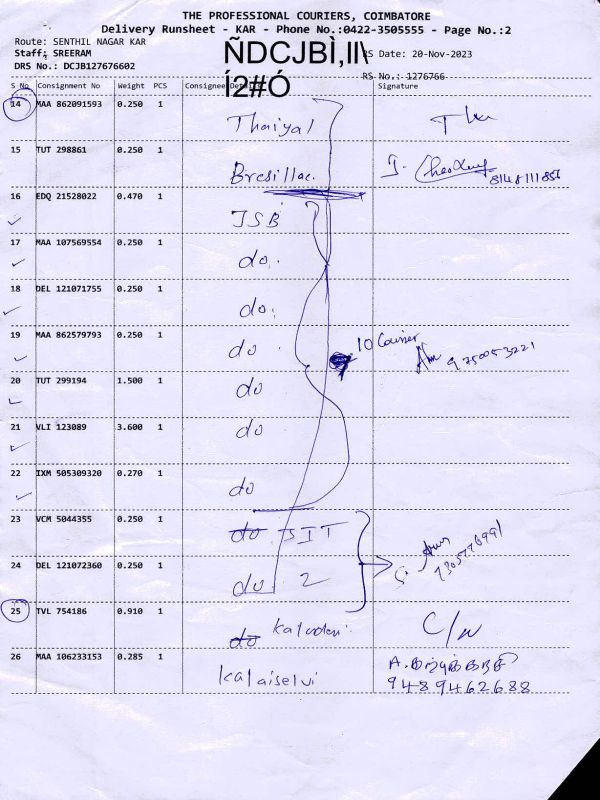 THE PROFESSIONAL COURIERS, COIMBATORE
Delivery Runsheet - KAR - Phone No.:0422-3505555 - Page No.:2
Route: SENTHIL NAGAR KAR
ÑDCJBÌ,II\
Staff: SREERAM
RS Date: 20-Nov-2023
DRS No.: DCJB127676602
Í2#Ó
RS No.: 1276766
S No Consignment No Weight PCS Consignee Details Signature
14 MAA 862091593 0.250 1 Thaiyal
15 TUT 298861 0.250 1 Bresillac.
16 EDQ 21528022 0.470 1 JSB
17 MAA 107569554 0.250 1 do.
18 DEL 121071755 0.250 1 do.
19 MAA 862579793 0.250 1 do. 10 Courier 9750053221
20 TUT 299194 1.500 1 do
21 VLI 123089 3.600 1 do
22 IXM 505309320 0.270 1 do
23 VCM 5044355 0.250 1 do SIT
24 DEL 121072360 0.250 1 do 2
25 TVL 754186 0.910 1 do C/N
26 MAA 106233153 0.285 1 Kalaiselvi 9489462688